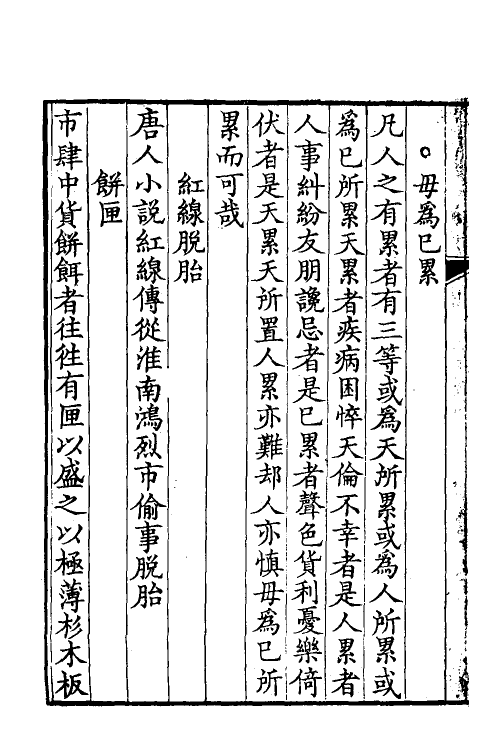 ○毋爲已累
凡人之有累者有三等或爲天所累或爲人所累或
爲已所累天累者疾病困悴天倫不幸者是人累者
人事糾紛友朋讒忌者是已累者聲色貨利憂樂倚
伏者是天累天所置人累亦難却人亦慎毋爲已所
累而可哉
紅線脱胎
唐人小説紅線傳從淮南鴻烈市偷事脱胎
餅匣
市肆中貨餅餌者往徃有匣以盛之以極薄杉木板